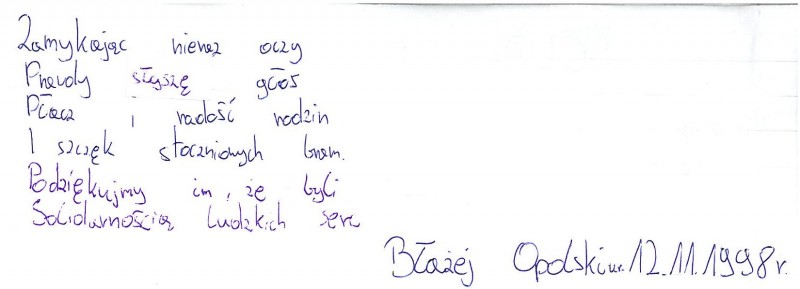 Zamykając nieraz oczy
Prawdy słyszę głos
Płacz i radość rodzin
I szczęk stoczniowych bram.
Podziękujmy im, że byli
Solidarnością ludzkich serc
Błażej Opolski ur. 12.11.1998r.